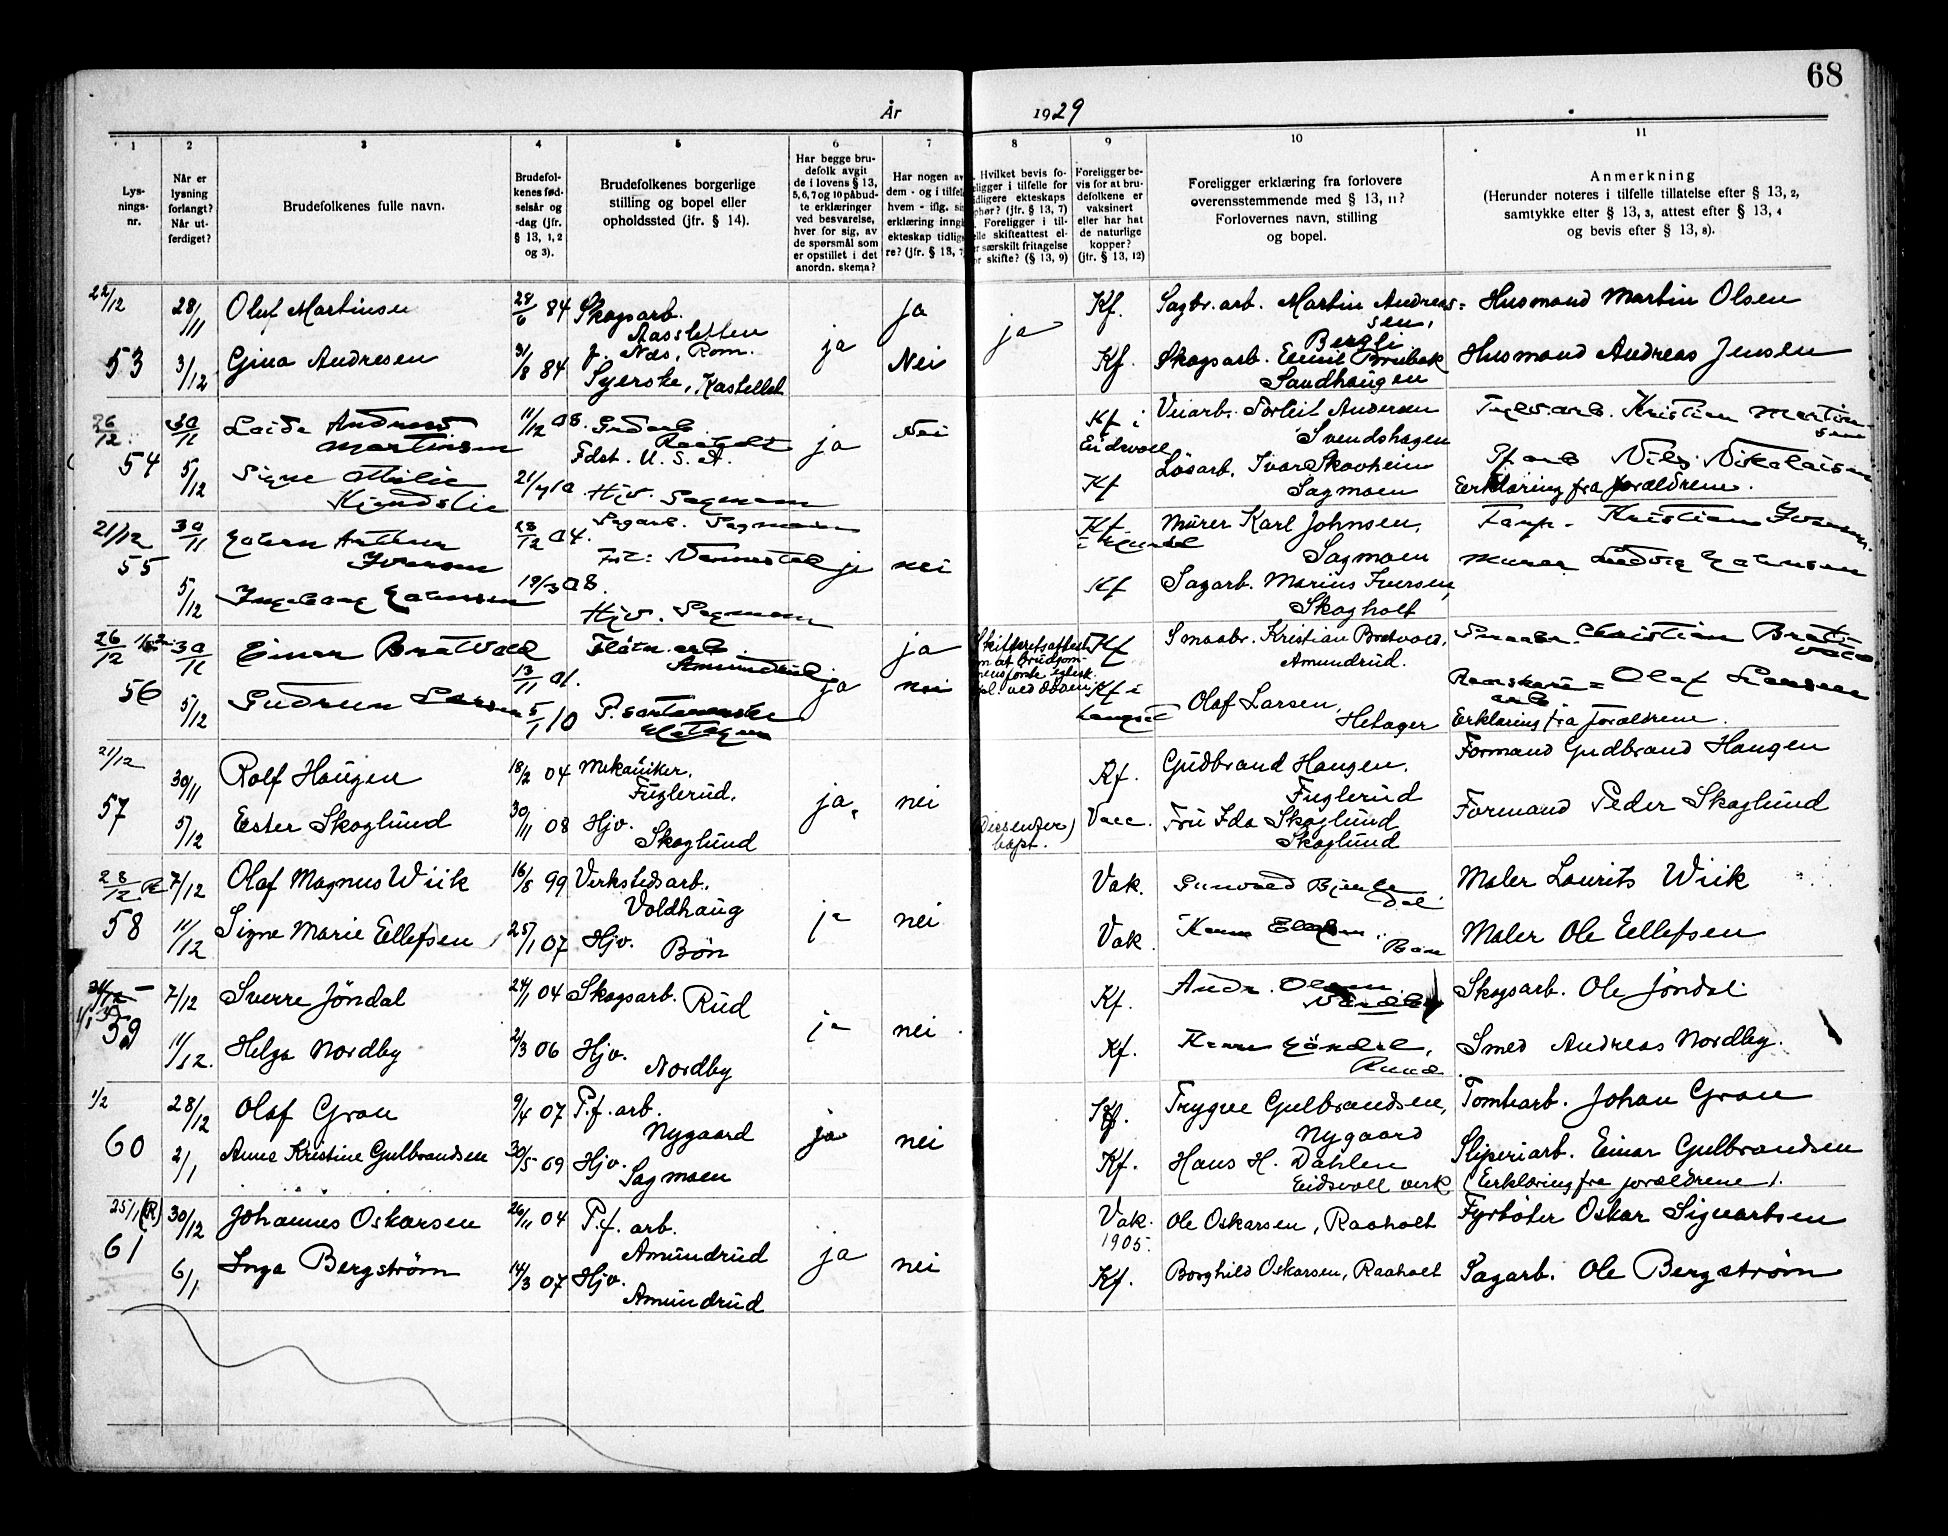 68
År 1929
1 2 3 4 5 6 7 8 9 10 11
Lys-
nings-
nr.
Når er
lysning
forlangt?
Når ut-
ferdiget?
Brudefolkenes fulle navn.
Brudefol-
kenes fød-
selsår og
-dag (jfr.
§ 13, 1, 2
og 3).
Brudefolkenes borgerlige
stilling og bopel eller
opholdssted (jfr. § 14).
Har begge bru-
defolk avgit
de i lovens § 13,
5, 6, 7 og 10 påbud-
te erklæringer
ved besvarelse,
hver for sig, av
de spørsmål som
er opstillet i det
anordn. skema?
Har nogen av
dem - og i tilfel
hvem - iflg. si
erklæring inng
ekteskap tidlig
re? (jfr. § 13, 7
Hvilket bevis fo-
eligger i tilfelle for
idligere ekteskaps
phør? (jfr. § 13, 7)
Foreligger i til-
elle skifteattest el-
r særskilt fritagelse
or skifte? (§ 13, 9)
Foreligger be-
vis for at bru-
defolkene er
vaksinert
eller har hat
de naturlige
kopper?
(jfr. § 13, 12)
Foreligger erklæring fra forlovere
overensstemmende med § 13, 11?
Forlovernes navn, stilling
og bopel.
Anmerkning
(Herunder noteres i tilfelle tillatelse efter § 13, 2,
samtykke efter § 13, 3, attest efter § 13, 4
og bevis efter § 13, 8).
22/12 28/11 Oluf Martinsen 28/6 84 Skogsarb. ja Kf. Sagbr. arb. Martin Andreas- Husmand Martin Olsen
Aassletten ja ja sen,
f. Næs, Rom. Bergli
53 3/12 Gina Andresen 31/8 84 Syerske, Kastellet Nei Kf. Skogsarb. Emil Brubak Husmand Andreas Jensen
Sandhaugen
26/12 30/11 Andreas 11/12 08. ja Nei Kf i Veiarb. Torleif Andersen Kristian Martin-
Martinsen Eidsvoll Svendshagen sen
Fdst. U. S. A.
54 5/12 Signe Otilie 21/7 10 Hjv. Sagmoen Kf Løsarb. Ivar Skovheim Nils Nikolaisen
Sagmoen Erklæring fra forældrene.
21/12 30/11 Johan Arthur 28/12 04. Sagarb. Sagmoen Kf Mürer Karl Johnsen, Kristian Iversen
55 Iversen ja nei Sagmoen Murer Ludvig Johnsen
5/12 Ingeborg Johnsen 19/3 08. Hjv. Sagmoen Kf Sagarb. Marius Iversen,
Skogholt
26/12 30/11 Einar Bratvold 13/11 01. Fløtn. arb. ja Kf Smaabr. Kristian Bratvold, Smaabr. Christian Brat-
Amundrud ja Amundrud. vold.
56 5/12 Gudrun Larsen 5/1 10 nei Kf i Olaf Larsen, Olaf Larsen
Langset Hetager Erklæring fra forældrene.
21/12 30/11 Rolf Haugen 18/2 04 Mekaniker, Kf. Gudbrand Haugen, Formand Gudbrand Haugen
Fuglerud. ja. nei Fuglerud
57 5/12 Ester Skoglund 30/11 08 Hjv. (Dissenter) Vacc. Fru Ida Skoglund Formand Peder Skoglund
Skoglund bapt. Skoglund
28/12 R 7/12 Olaf Magnus Wiik 16/8 99 Verkstedsarb. Vak. Maler Laurits Wiik
Voldhaug ja nei
58 11/12 Signe Marie Ellefsen 25/1 07 Hjv. Bøn Vak. Bøn Maler Ole Ellefsen
7/12 Sverre Jøndal 24/1 04 Skogsarb. Rud Kf. Andr. Olsen Skogsarb. Ole Jøndal
59 ja nei
11/12. Helga Nordby 2/3 06 Hjv. Kf. Smed Andreas Nordby.
Nordby
1/2 28/12 Olaf Gran 9/4 07 P.f. arb. Kf. Trygve Gulbrandsen, Tomtearb. Johan Gran
Nygaard ja nei Nygaard
60 2/1 Anne Kristine Gulbrandsen 30/5 09 Hjv. Kf. Hans H. Dahlen Sliperiarb. Einar Gulbrandsen
Sagmoen Eidsvoll verk (Erklæring fra forældrene).
25/1 (R) 30/12 Johannes Oskarsen 26/11 04 P.f. arb. Vak. Ole Oskarsen, Raaholt Fyrbøter Oskar Sigvartsen
Amundrud ja nei 1905.
61 6/1 Inga Bergstrøm 14/3 07 Hjv. Kf. Borghild Oskarsen, Raaholt Sagarb. Ole Bergstrøm
Amundrud